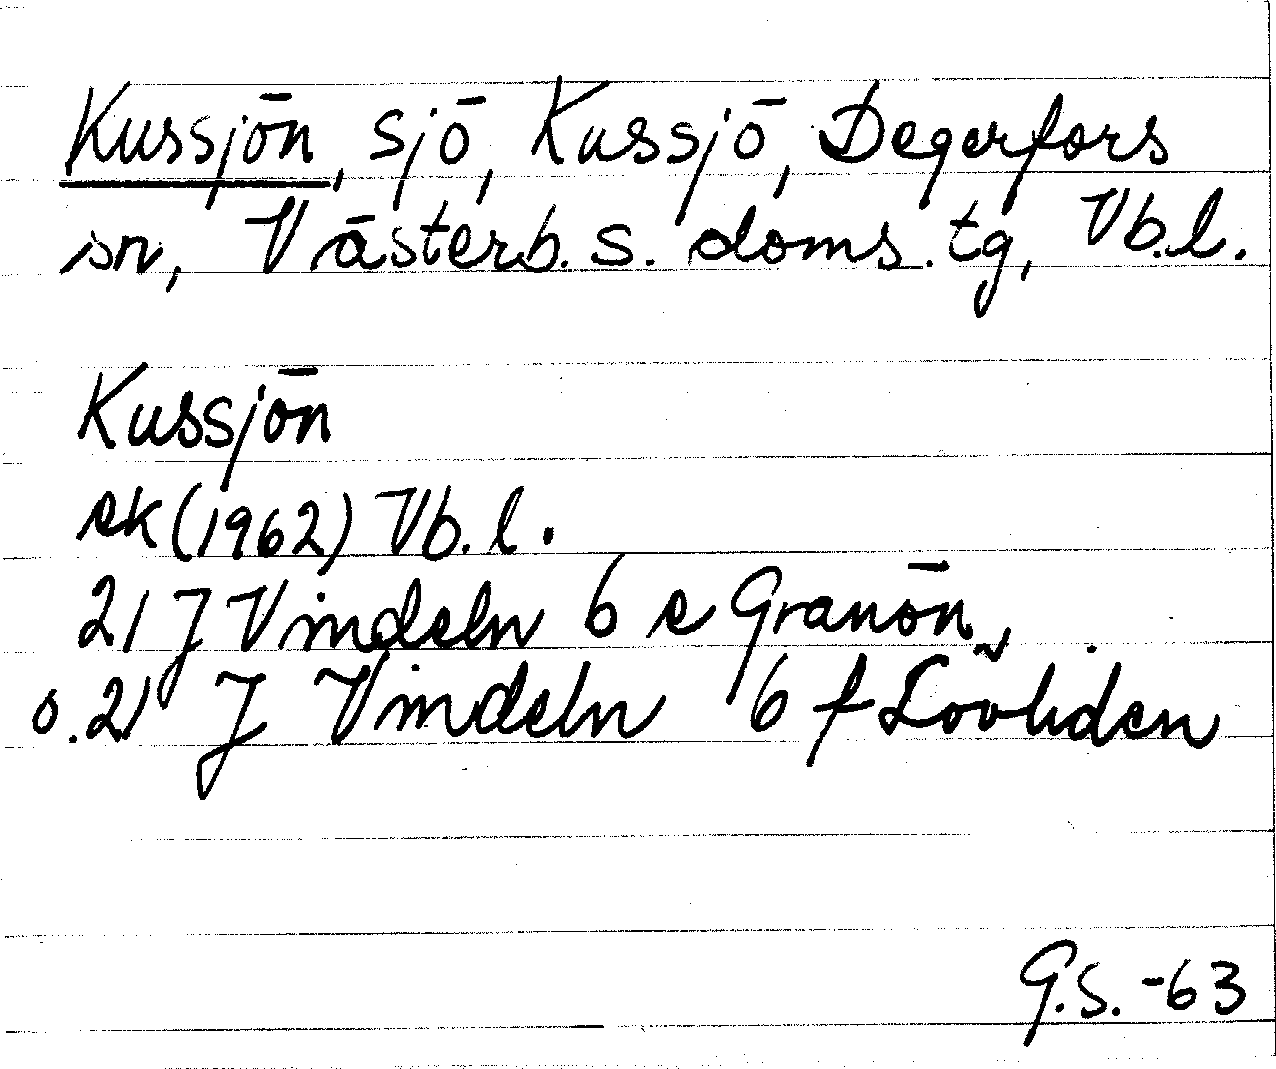 Kussjön, sjö, Kussjö, Degerfors
sn, Västerb. s. doms. tg, Vb.l.
Kussjön
ek (1962) Vb.l.
21 J Vindeln 6 e Granön,
o. 21 J Vindeln 6 f Lövliden
G.S. -63